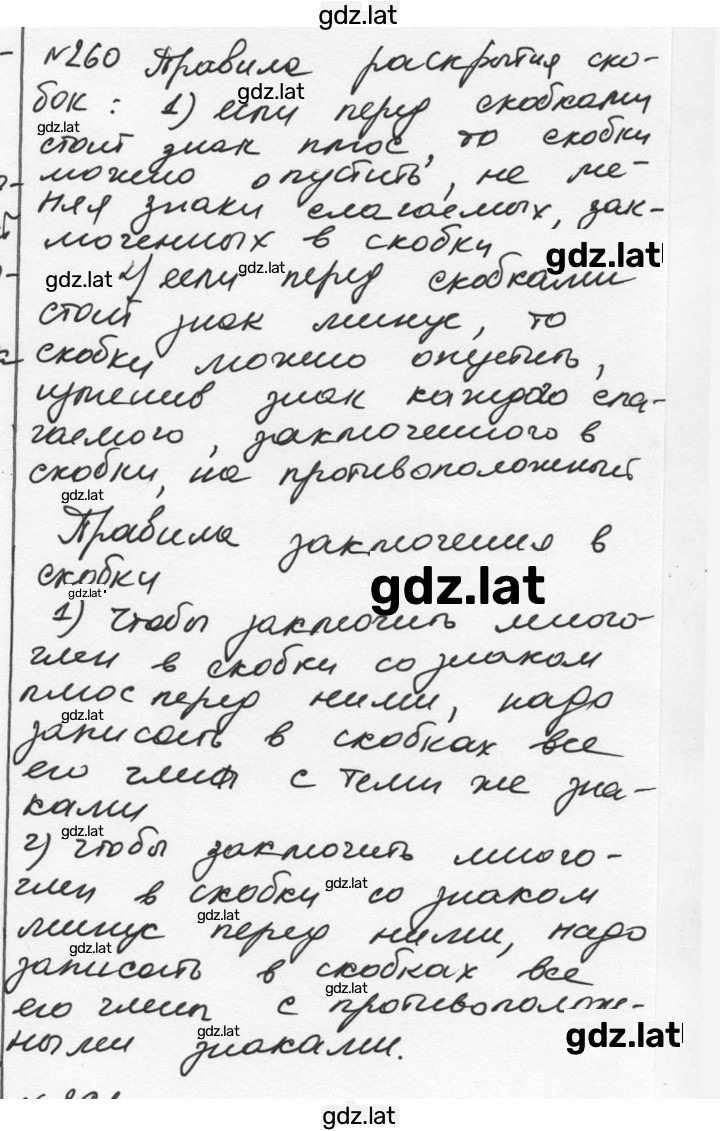 gdz.lat
№260 Правила раскрытия ско-
бок: 1) если перед скобками
gdz.lat
gdz.lat
стоит знак плюс, то скобки
можно опустить, не ме-
няя знаки слагаемых, зак-
люченных в скобки
gdz.lat
gdz.lat
gdz.lat
2) если перед скобками
стоит знак минус, то
скобки можно опустить,
изменив знак каждого сла-
гаемого, заключенного в
скобки, на противоположный
gdz.lat
Правила заключения в
скобки
gdz.lat
gdz.lat
1) Чтобы заключить много-
член в скобки со знаком
плюс перед ними, надо
gdz.lat
записать в скобках все
его члены с теми же зна-
ками
gdz.lat
2) Чтобы заключить много-
член в скобки со знаком
gdz.lat
gdz.lat
минус перед ними, надо
gdz.lat
записать в скобках все
gdz.lat
его члены с противополож-
gdz.lat
gdz.lat
ными знаками.
gdz.lat